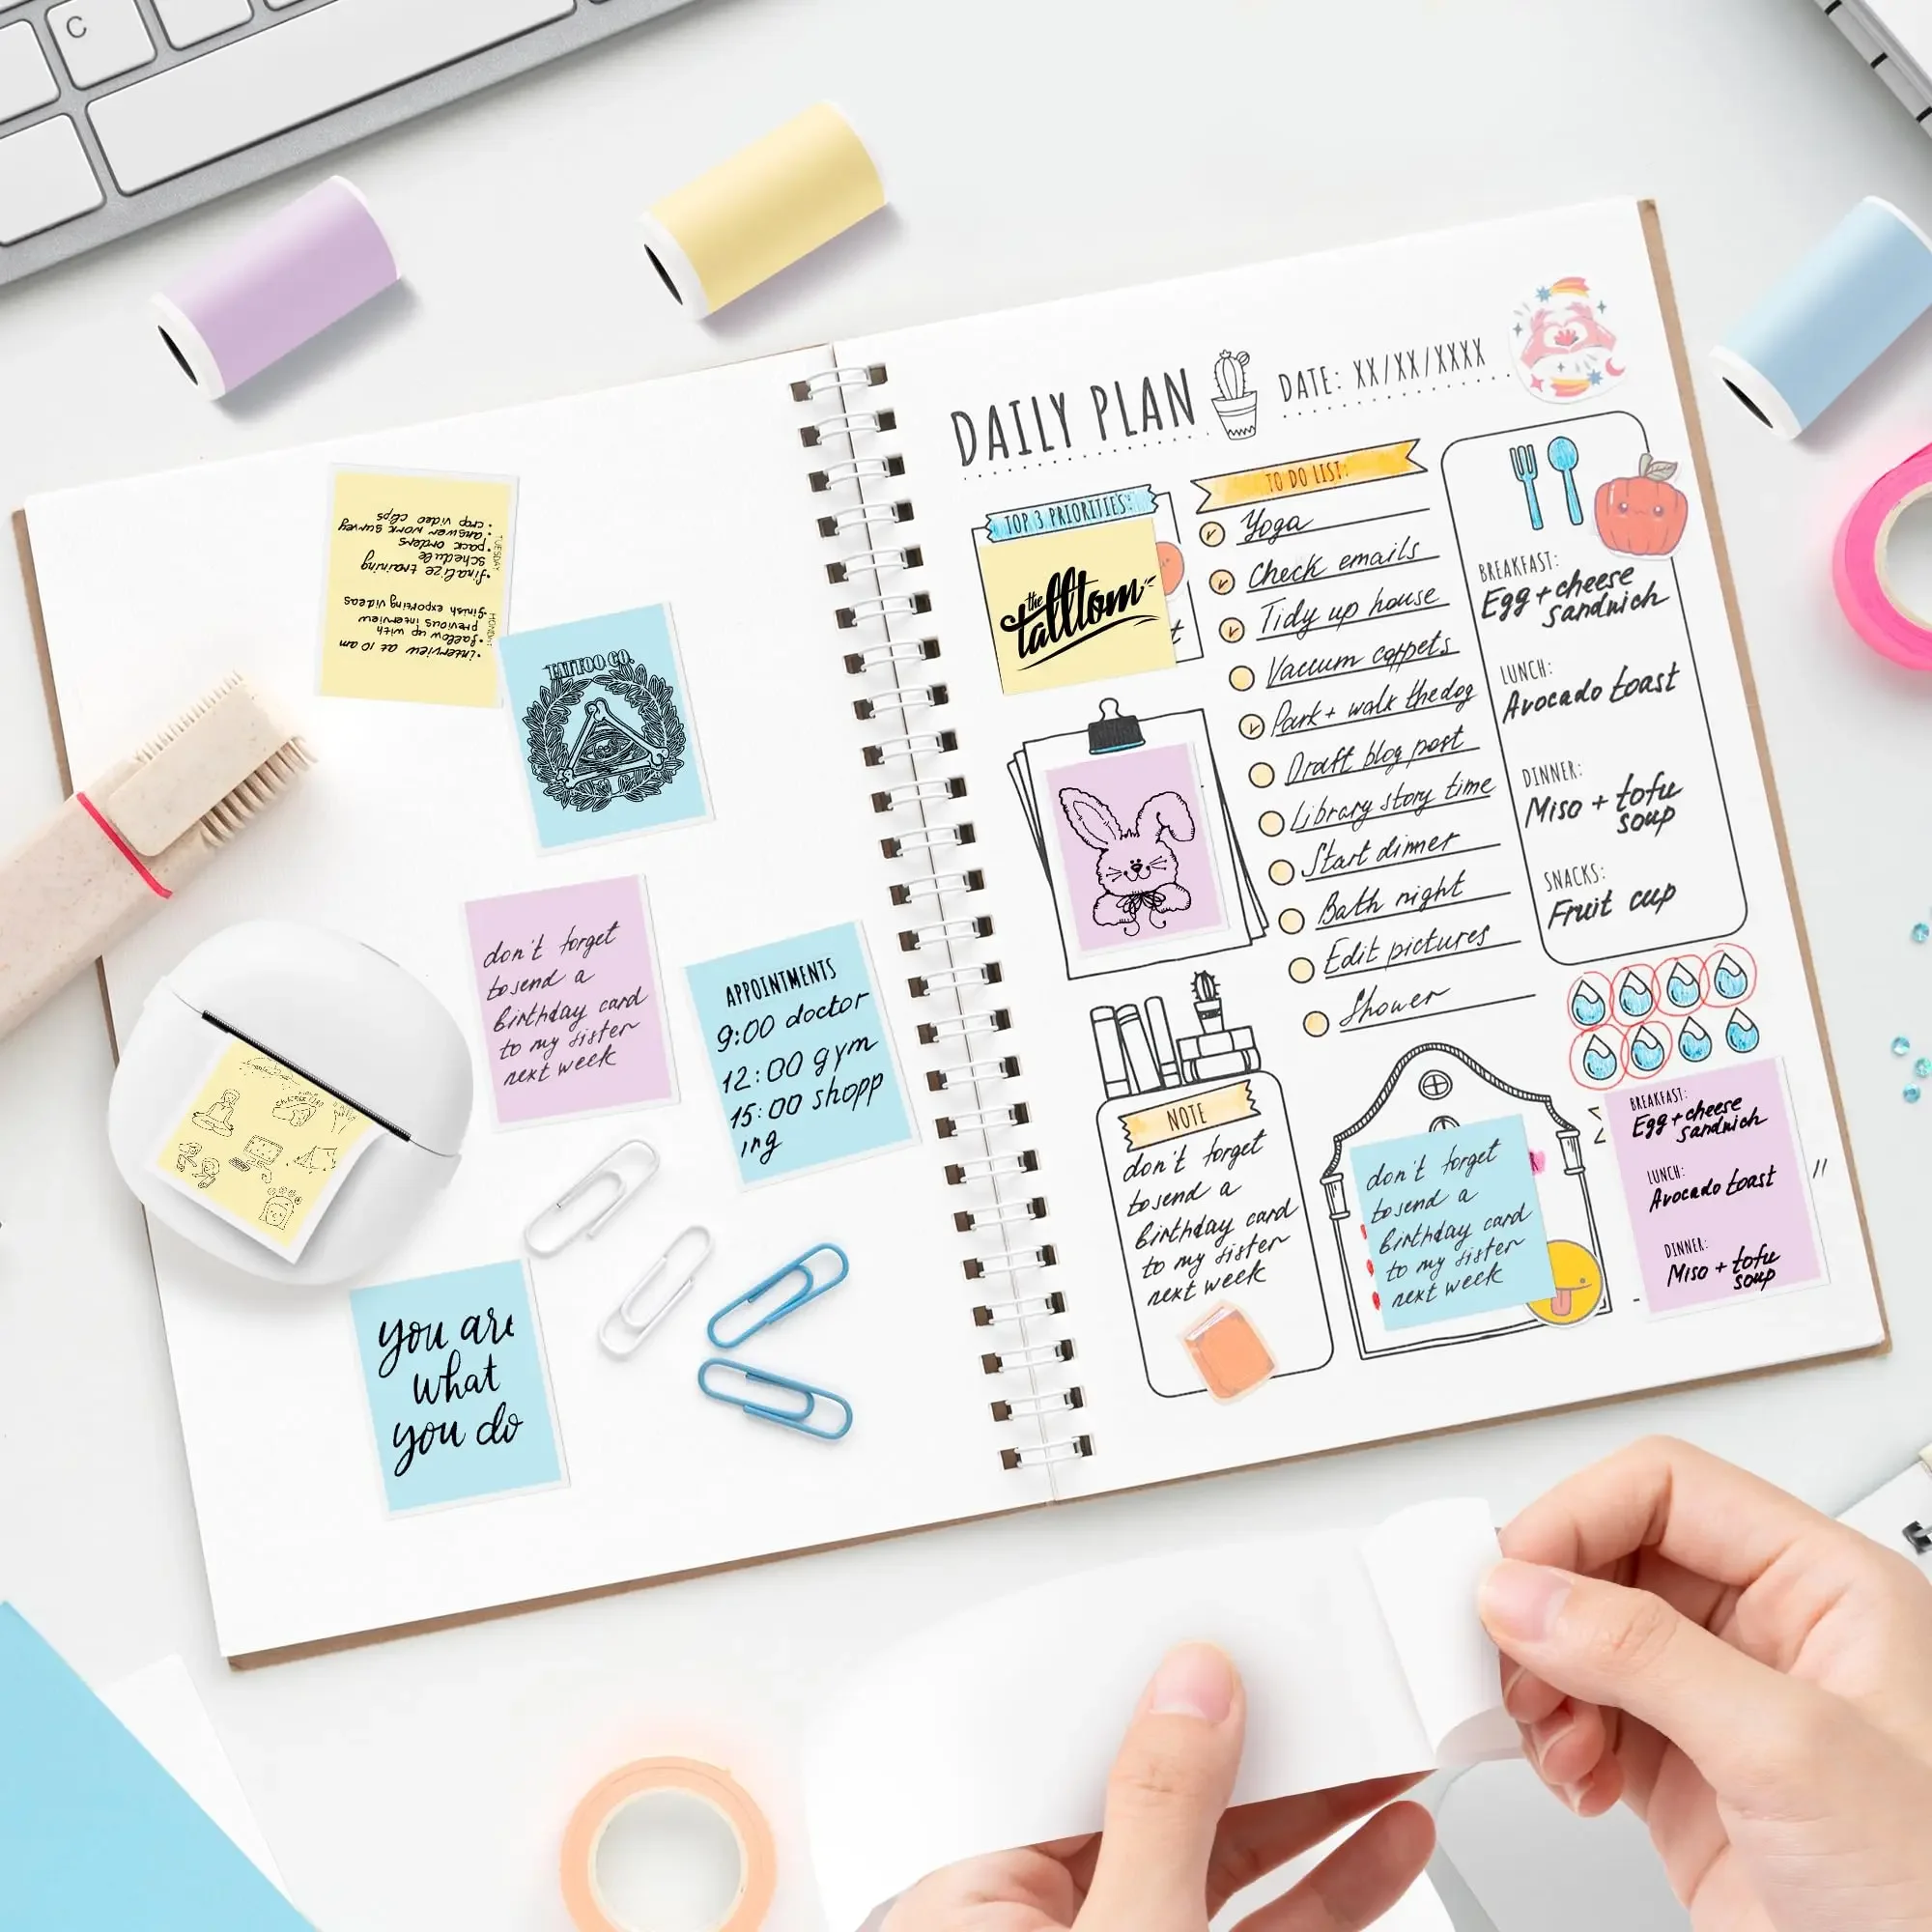 C
TUESDAY
• crop video clips
• answer work survey
• pack orders
schedule
• finalize training
MONDAY
finish exporting videos
previous interview
• follow up with
• interview at 10 am
TATTOO CO.
don't forget
to send a
birthday card
to my sister
next week
APPOINTMENTS
9:00 doctor
12:00 gym
15:00 shopp
ing
you are
what
you do
DAILY PLAN
DATE: XX/XX/XXXX
TOP 3 PRIORITIES:
the
talltom
TO DO LIST:
Yoga
Check emails
Tidy up house
Vacuum carpets
Park + walk the dog
Draft blog post
Library story time
Start dinner
Bath night
Edit pictures
Shower
BREAKFAST:
Egg + cheese
sandwich
LUNCH:
Avocado toast
DINNER:
Miso + tofu
soup
SNACKS:
Fruit cup
NOTE
don't forget
to send a
birthday card
to my sister
next week
don't forget
to send a
birthday card
to my sister
next week
BREAKFAST:
Egg + cheese
sandwich
LUNCH:
Avocado toast
DINNER:
Miso + tofu
soup